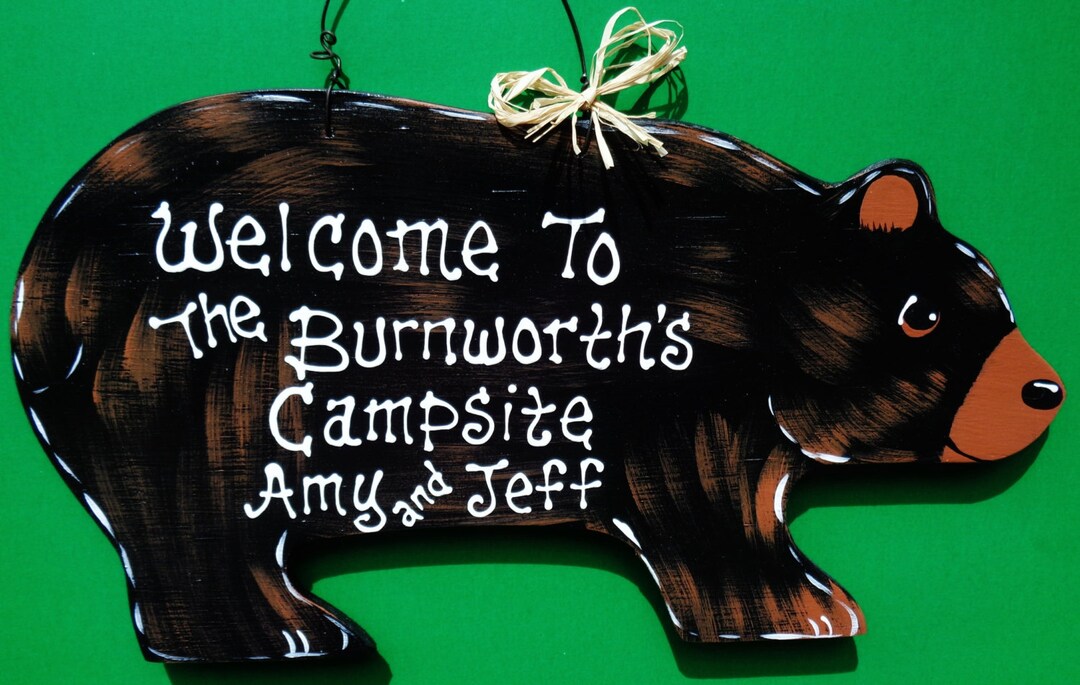 Welcome To
The Burnworth's
Campsite
Amy and Jeff